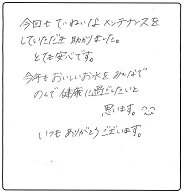 今回も ていねいな メンテナンスを
していただき 助かりました。
とても安心です。
今年も おいしいお水を みんなで
のんで 健康に 過ごしたいと
思います。
いつも ありがとうございます。